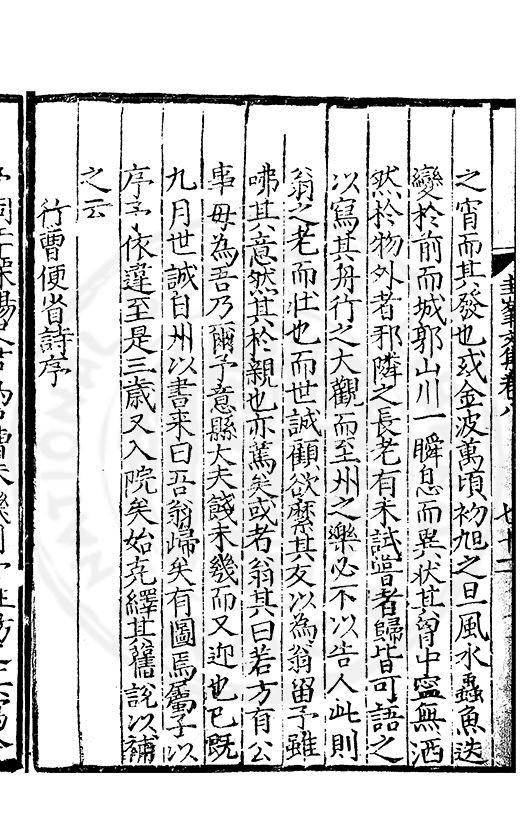 之宵而其發也或金波萬頃初旭之旦風水蟲魚迭
變於前而城郭山川一瞬息而異狀其胷中寧無洒
然於物外者邪隣之長老有未試嘗者歸皆可語之
以寫其舟行之大觀而至州之樂必不以告人此則
翁之老而壮也而世誠顧欲縻其友以為翁留予雖
咈其意然其於親也亦篤矣或者翁其曰若方有公
事毋為吾乃爾予意縣大夫餞未幾而又迎也已既
九月世誠自州以書来曰吾翁歸矣有圖焉屬子以
序予依違至是三歳又入院矣始克繹其舊說以補
之云
行曹便省詩序